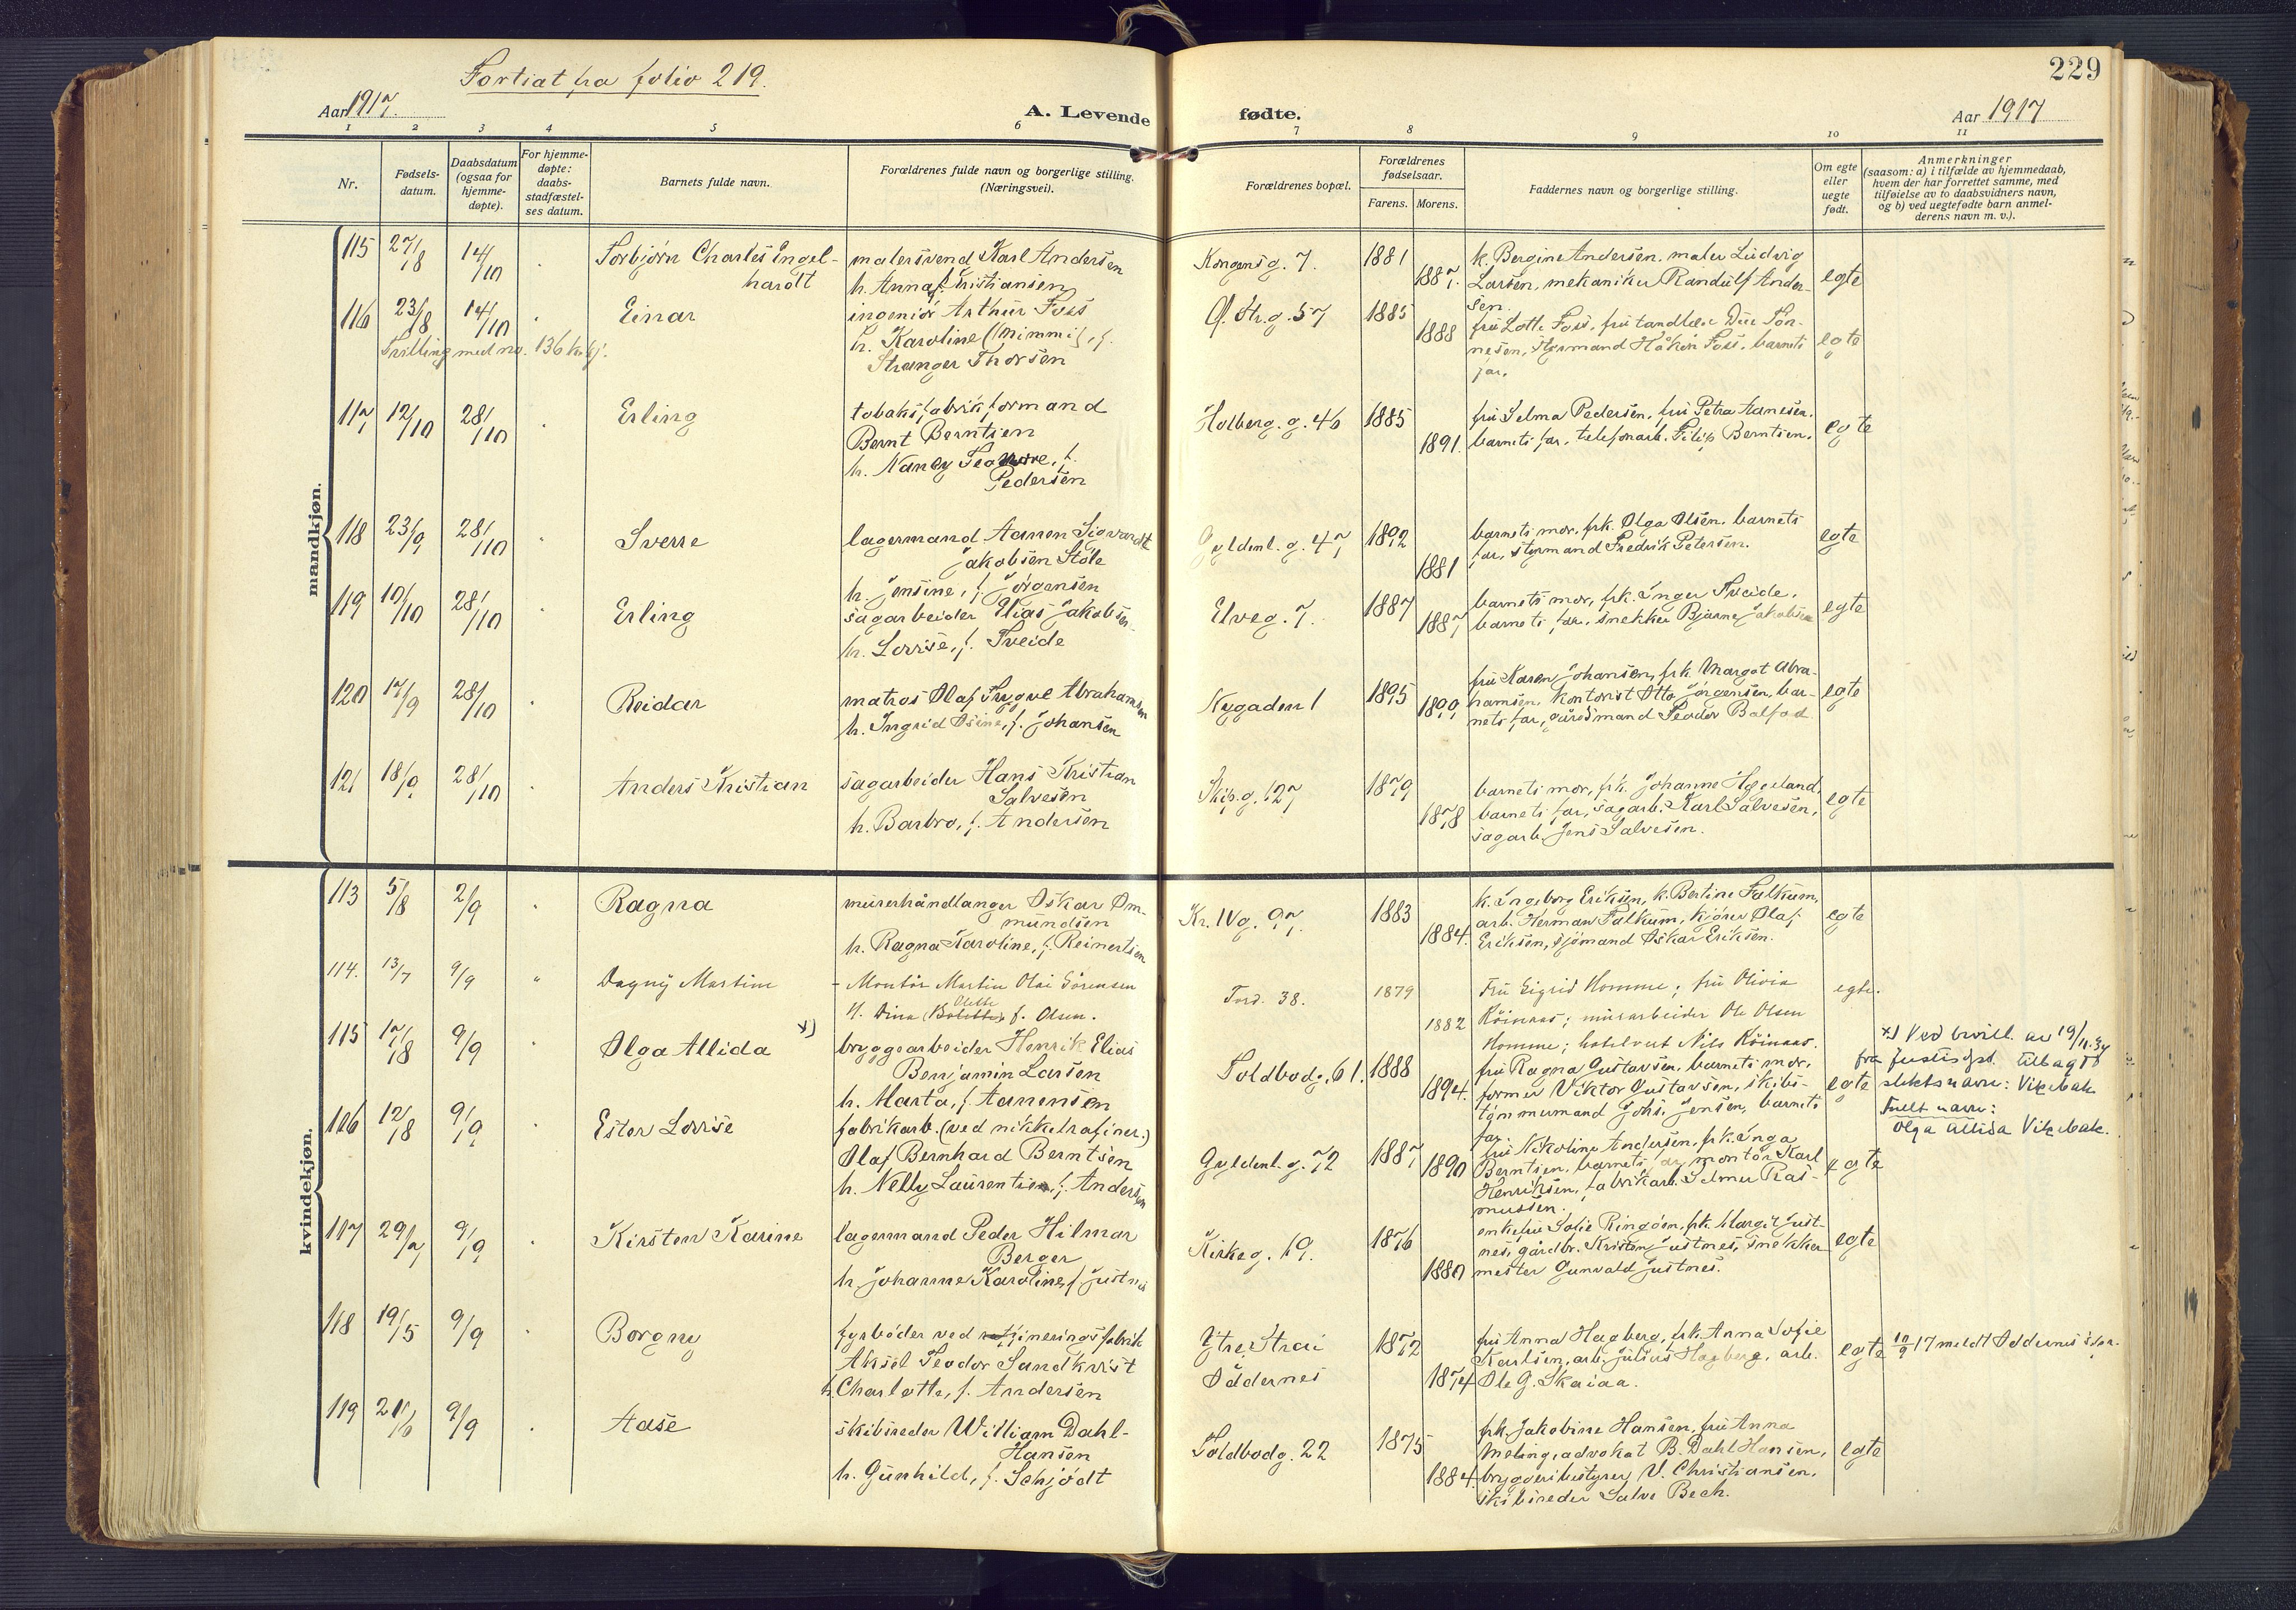 Fortsat fra folio 219.
229
Aar 1917.
A. Levende
fødte.
Aar 1917
1 2 3 4 5 6 7 8 9 10 11
Nr.
Fødsels-
datum.
Daabsdatum
(ogsaa for
hjemme-
døpte).
For hjemme-
døpte:
daabs-
stadfæstel-
ses datum.
Barnets fulde navn.
Forældrenes fulde navn og borgerlige stilling.
(Næringsvei).
Forældrenes bopæl.
Forældrenes
fødselsaar.
Farens. Morens.
Faddernes navn og borgerlige stilling.
Om egte
eller
uegte
født.
Anmerkninger
(saasom: a) i tilfælde av hjemmedaab,
hvem der har forrettet samme, med
tilføielse av to daabsvidners navn,
og b) ved uegtefødte barn anmel-
derens navn m. v.).
mandkjøn.
115 27/8 14/10 Torbjørn Charles Engel-
hardt
malersvend Karl Andersen
h. Anna f. Kristiansen
Kongensg. 7. 1881 1887.
k. Bergine Andersen, maler Ludvig
Larsen, mekaniker Randulf Ander-
sen.
egte
116 23/8 14/10 Einar
Tvilling med no. 136 kvkj.
ingeniør Arthur Foss
h. Karoline (Mimmi), f.
Stranger Thorsen
Ø. Str.g. 57 1885 1888
fru Lotte Foss, fru tandlæge Due Tør-
nesen, styrmand Håkon Foss, barnets
far.
egte
117 12/10 28/10 Erling
tobaksfabrikformand
Bernt Berntsen
h. Nancy Teodore, f.
Pedersen
Holberg. g. 46 1885 1891.
fru Selma Pedersen, fru Petra Aanesen,
barnets far, telefonarb. Filip Berntsen.
egte
118 23/9 28/10 Sverre
lagermand Aanen Sigvardt
Jakobsen Støle
h. Jensine, f. Jørgensen
Gyldenl. g. 47 1892 1881
barnets mor, frk. Olga Olsen, barnets
far, styrmand Fredrik Petersen.
egte
119 10/10 28/10 Erling
sagarbeider Elias Jakobsen
h. Lovise, f. Tveide
Elveg. 7. 1887 1887
barnets mor, frk. Inger Tveide,
barnets far, snekker Bjarne Jakobsen
egte
120 17/9 28/10 Reidar
matros Olaf Trygve Abrahamsen
h. Ingrid Osine, f. Johansen
Nygaden 1 1895 1899
fru Karen Johansen, frk. Margot Abra-
hamsen, kontorist Otto Jørgensen, bar-
nets far, gårdsmand Peder Balfod.
egte
121 18/9 28/10 Anders Kristian
sagarbeider Hans Kristian
Salvesen
h. Barbro, f. Andersen
Skip. g. 127 1879 1878
barnets mor, frk. Johanne Hægeland,
barnets far, sagarb. Karl Salvesen,
sagarb. Jens Salvesen.
egte
kvindekjøn.
113 5/8 2/9 Ragna
murerhåndlanger Oskar Om-
mundsen
h. Ragna Karoline, f. Reinertsen
Kr. IV g. 97. 1883 1884.
k. Ingeborg Eriksen, k. Bertine Falkum,
arb. Herman Falkum, kjører Olaf
Eriksen, sjømand Oskar Eriksen.
egte
114. 13/7 9/9 Dagny Martine
Montør Martin Olai Sørensen
H. Dina (Bolette) Olette f. Olsen.
Tord. 38. 1879 1882
Fru Sigrid Homme; fru Olivia
Röinaas; murarbeider Ole Olsen
Homme; hotelvert Nils Röinaas.
egte.
115 17/8 9/9 Olga Allida x)
bryggearbeider Henrik Elias
Benjamin Larsen
h. Marta, f. Aanensen
Toldbodg. 61. 1888 1894.
fru Ragna Gustavsen, barnets mor,
former Viktor Gustavsen, skibs-
tømmermand Johs. Jensen, barnets
far.
egte
x) Ved bevill. av 19/11.34
fra Justisdpt. tilbagt
slektsnavn: Vikebak
Fullt navn:
Olga Allida Vikebak.
116 12/8 9/9 Ester Lovise
fabrikarb. (ved nikkelrafiner.)
Olaf Bernhard Berntsen
h. Nelly Laurentine, f. Andersen
Gyldenl. g. 72 1887 1890
fru Nikoline Andersen, frk. Inga
Berntsen, barnets far, montør Karl
Henriksen, fabrikarb. Selmer Ras-
mussen.
egte
117 29/7 9/9 Kirsten Karine
lagermand Peder Hilmar
Berger
h. Johanne Karoline, f. Justnes
Kirkeg. 19. 1876 1880
enkefru Sofie Ringøen, frk. Margit Just-
nes, gårdbr. Kristen Justnes, snekker-
mester Gunvald Justnes.
egte
118 19/5 9/9 Borgny
fyrbøder ved raffineringsfabrik
Aksel Teodor Sandkvist
h. Charlotte, f. Andersen
Ytre Strai
Oddernes
1872 1874
fru Anna Hagberg, frk. Anna Sofie
Karlsen, arb. Julius Hagberg, arb.
Ole G. Skaiaa.
egte
10/9 17 meldt Oddernes
119 21/6 9/9 Aase
skibsreder William Dahl-
Hansen
h. Gunhild, f. Schjødt
Toldbodg. 22 1875 1884.
frk. Jakobine Hansen, fru Anna
Meling, advokat B. Dahl Hansen,
bryggeribestyrer V. Christiansen,
skibsreder Salve Bech.
egte